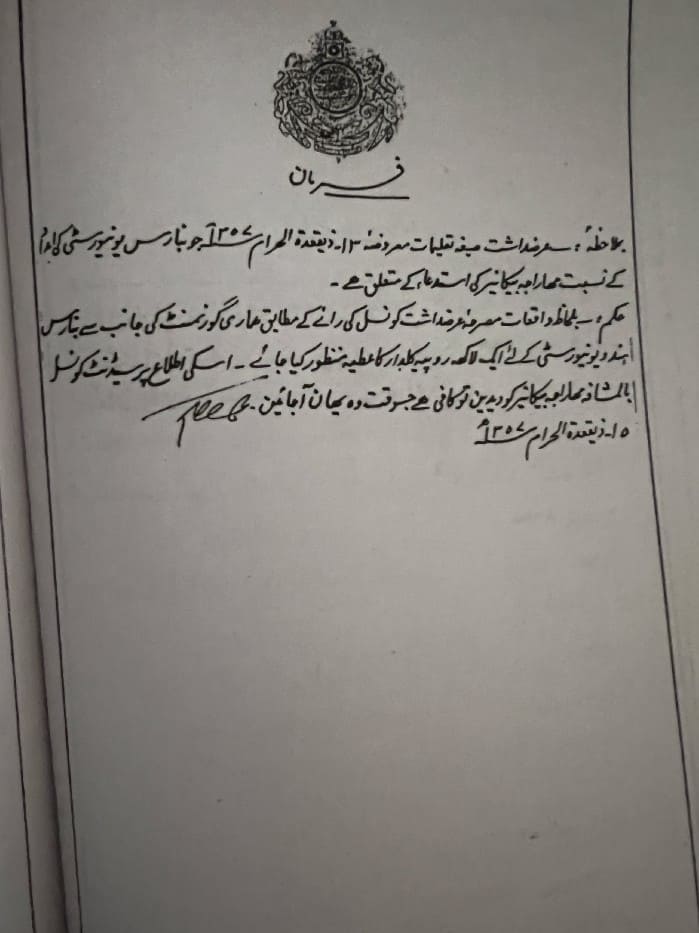 فرمان
بملاحظہ :۔ عرضداشت صیغہ تعلیمات معروضہ ۱۳۔ ذیقعدۃ الحرام ۱۳۵۷ھ جو بنارس یونیورسٹی کی امداد
کے نسبت مہاراجہ بیکانیر کی استدعاء کے متعلق ہے ۔
حکم :۔ بلحاظ واقعات مصرحۂ عرضداشت کونسل کی رائے کے مطابق ہماری گورنمنٹ کی جانب سے بنارس
ہندو یونیورسٹی کے لئے ایک لاکھ روپیہ کلدار کا عطیہ منظور کیا جائے ۔ اسکی اطلاع پریسیڈنٹ کونسل
بالمشافہ مہاراجہ بیکانیر کو دیدیں تو کافی ہے جسوقت وہ یہاں آجائیں ۔
۱۵۔ ذیقعدۃ الحرام ۱۳۵۷ھ